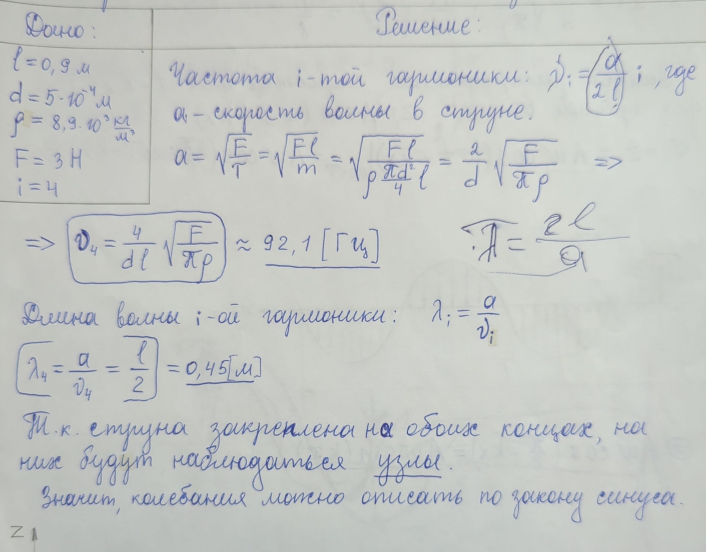 Дано:
l = 0,9 м
d = 5·10⁻⁴ м
ρ = 8,9·10³ кг/м³
F = 3 Н
i = 4
Решение:
Частота i-той гармоники: ν_i = a/2l i, где
a – скорость волны в струне.
a = √(F/τ) = √(Fl/m) = √(Fl/(ρ πd²/4 l)) = 2/d √(F/πρ) =>
=> ν₄ = 4/dl √(F/πρ) ≈ 92,1 [Гц]
T = 2l/a
Длина волны i-ой гармоники: λ_i = a/ν_i
λ₄ = a/ν₄ = l/2 = 0,45 [м]
Т.к. струна закреплена на обоих концах, на
них будут наблюдаться узлы.
Значит, колебания можно описать по закону синуса.